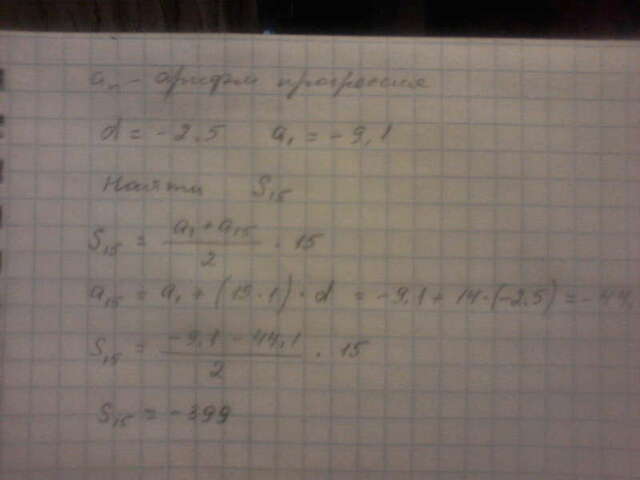 aₙ - арифм прогрессия
d = -2.5 a₁ = -9,1
Найти S₁₅
S₁₅ = (a₁ + a₁₅)/2 · 15
a₁₅ = a₁ + (15-1)·d = -9.1 + 14·(-2.5) = -44,
S₁₅ = (-9,1 - 44,1)/2 · 15
S₁₅ = -399